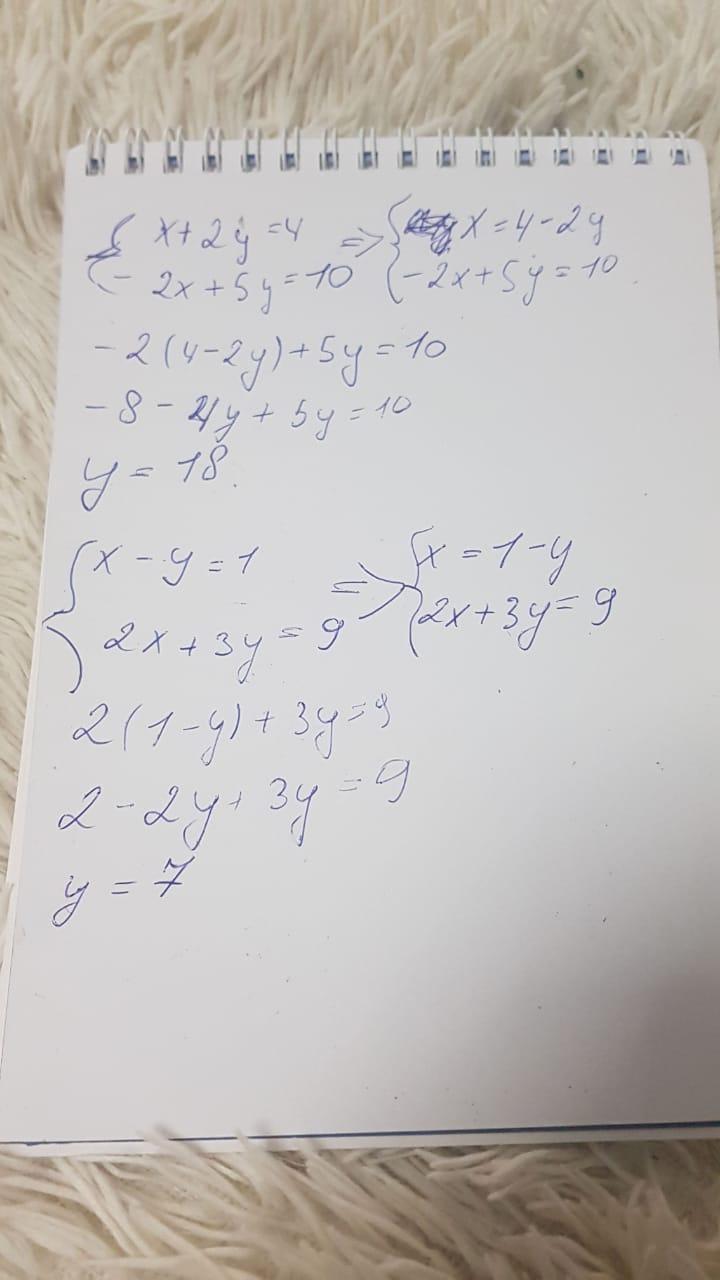 { x + 2y = 4 => { x = 4 - 2y
{ - 2x + 5y = 10 { - 2x + 5y = 10
- 2 (4 - 2y) + 5y = 10
- 8 - 4y + 5y = 10
y = 18.
{ x - y = 1 => { x = 1 - y
{ 2x + 3y = 9 { 2x + 3y = 9
2 (1 - y) + 3y = 9
2 - 2y + 3y = 9
y = 7